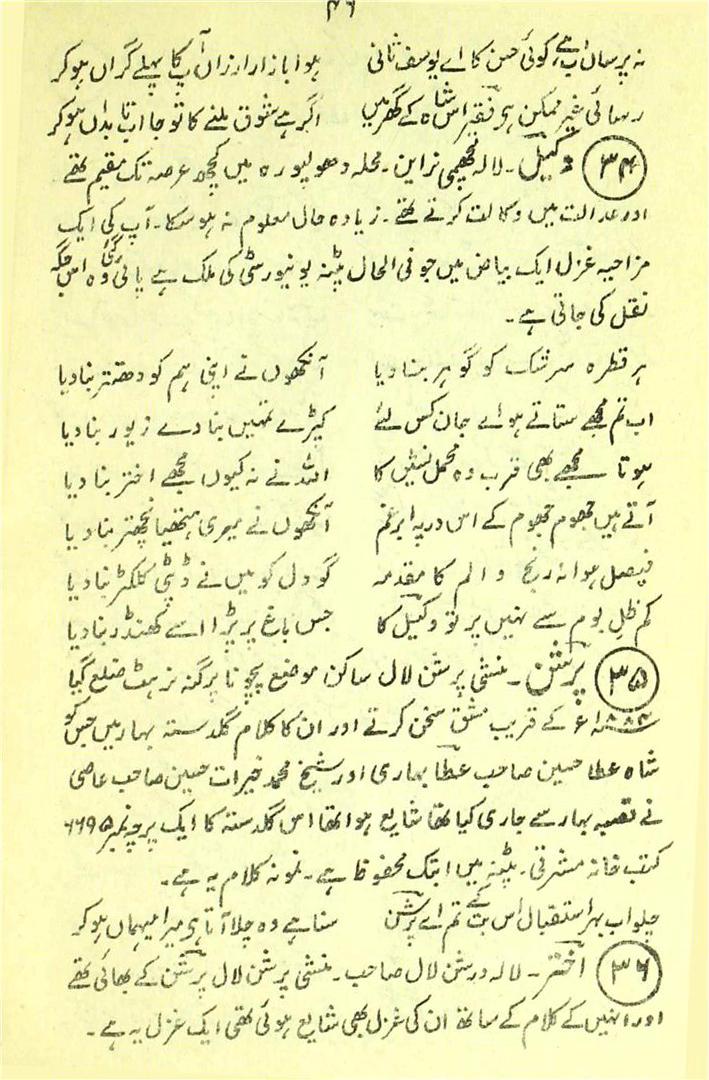 ۴۶
نہ پرساں اب ہے کوئی حسن کا اے یوسف ثانی ہوا بازار ارزاں آپ کا پہلے گراں ہو کر
رسائی غیر ممکن ہی فقیر اس شاہ کے گھر میں اگر ہے شوق ملنے کا تو جا اب تابداں ہو کر
۳۴ وکیل۔ لالہ لچھمی نراین۔ محلہ دھولپورہ میں کچھ عرصہ تک مقیم تھے
اور عدالت میں وکالت کرتے تھے۔ زیادہ حال معلوم نہ ہو سکا۔ آپ کی ایک
مزاحیہ غزل ایک بیاض میں جو فی الحال پٹنہ یونیورسٹی کی ملک ہے پائی گئی وہ اس جگہ
نقل کی جاتی ہے۔
ہر قطرہ سرشک کو گوہر بنا دیا آنکھوں نے اپنی ہم کو دھنتر بنا دیا
اب تم مجھے ستاتے ہو اے جان کس لئے کپڑے تمہیں بنا دے زیور بنا دیا
ہوتا مجھے بھی قرب وہ محمل نشیں کا اللہ نے نہ کیوں مجھے اختر بنا دیا
آتے ہیں جھوم جھوم کے اس در پہ ابر غم آنکھوں نے میری ہتھیا نچھتر بنا دیا
فیصل ہوا نہ رنج و الم کا مقدمہ گو دل کو میں نے ڈپٹی کلکٹر بنا دیا
کم ظل بوم سے نہیں پرتو وکیل کا جس باغ پر پڑا اسے کھنڈر بنا دیا
۳۵ پرشن۔ منشی پرشن لال ساکن موضع پچونا پرگنہ نرہٹ ضلع گیا
۱۸۸۴ء کے قریب مشق سخن کرتے اور ان کا کلام گلدستہ بہار میں جس کو
شاہ عطا حسین صاحب عطا بہاری اور شیخ محمد خیرات حسین صاحب عاصی
نے قصبہ بہار سے جاری کیا تھا شایع ہوا تھا اس گلدستہ کا ایک پرچہ نمبر ۶۶۹۵
کتب خانہ مشرقی۔ پٹنہ میں ابتک محفوظ ہے۔ نمونہ کلام یہ ہے۔
چلو اب بہر استقبال اس بت کے تم اے پرشن سنا ہے وہ چلا آتا ہی میرا میہماں ہو کر
۳۶ اختر۔ لالہ درشن لال صاحب۔ منشی پرشن لال پرشن کے بھائی تھے
اور انہیں کے کلام کے ساتھ ان کی غزل بھی شایع ہوئی تھی ایک غزل یہ ہے۔